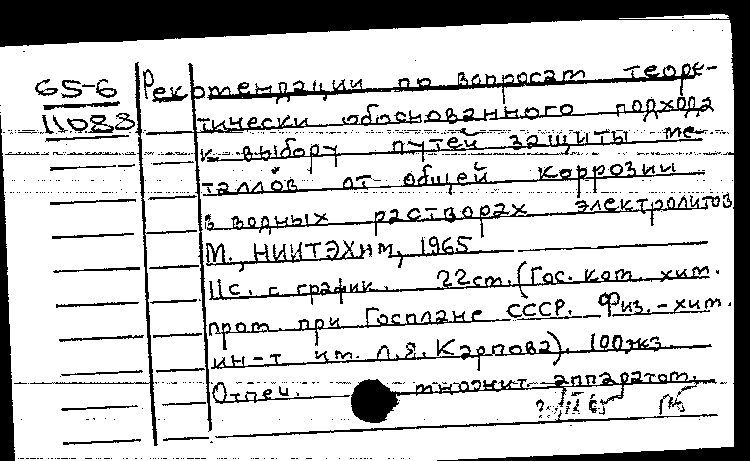 65-6
11088
Рекомендации по вопросам теоре-
тически обоснованного подхода
к выбору путей защиты ме-
таллов от общей коррозии
в водных растворах электролитов
М., НИИТЭХим, 1965
11с. с график. 22см. (Гос. ком. хим.
пром. при Госплане СССР. Физ.-хим.
ин-т им. Л.Я. Карпова). 100экз.
Отпеч. множит. аппаратом.